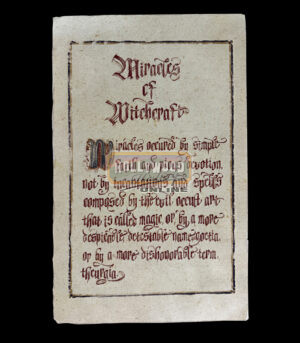 Miracles
of
Witchcraft
Miracles occured by simple
faith and pious devotion,
not by incantations and spells
composed by the evil occult art
that is called magic, or by a more
despicable, detestable name goetia,
or by a more dishonorable term
theurgia.
ONLINE